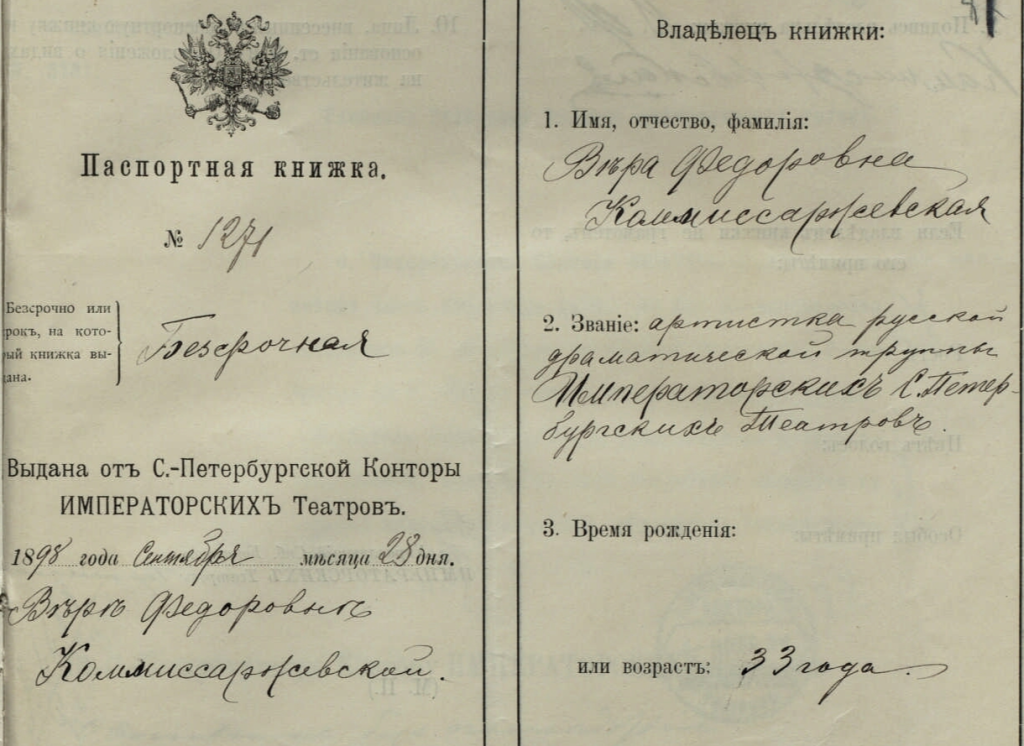 Паспортная книжка.
№ 1271
Безсрочно или
рокъ, на кото-
ый книжка вы-
дана.
Безсрочная
Выдана отъ С.-Петербургской Конторы
ИМПЕРАТОРСКИХЪ Театровъ.
1898 года Сентября мѣсяца 28 дня.
Вѣрѣ Федоровнѣ
Коммиссаржевской.
Владѣлецъ книжки:
1. Имя, отчество, фамилія:
Вѣра Федоровна
Коммиссаржевская
2. Званіе: артистка русской
драматической труппы
Императорскихъ С. Петер-
бургскихъ Театровъ.
3. Время рожденія:
или возрастъ: 33 года.